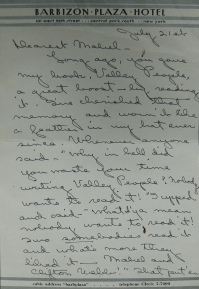 BARBIZON-PLAZA-HOTEL
101 west 58th street ... central park south ... new york
July 21st
Dearest Mabel -
Long ago, you gave
my book, Valley People,
a great boost - by reading
it. I've cherished that
memory and worn it like
a feather in my hat ever
since. Whenever anyone
said - "Why in hell did
you waste your time
writing Valley People? Nobody
wants to read it!" I upped
and said - "Whatd'ya mean
nobody wants to read it!
Two somebodies read it
and what's more they
liked it - Mabel and
Clifton Webb!" That put 'em
cable address "barbplaza" telephone Circle 7-7000